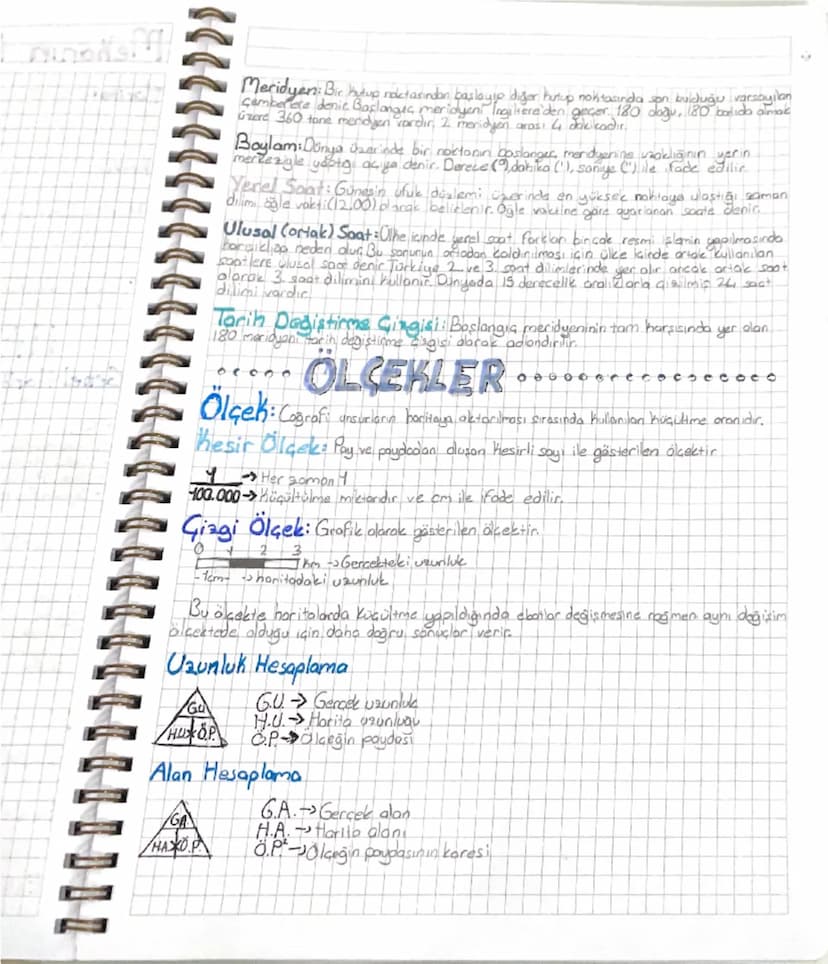 Meridyen: Bir kutup noktasından başlayıp diğer kutup noktasında son bulduğu varsayılan
çemberlere denir. Başlangıç meridyeni İngiltere'den geçer. 180 doğu, 180 batıda olmak
üzere 360 tane meridyen vardır. 2 meridyen arası 4 dakikadır.
Boylam: Dünya üzerinde bir noktanın başlangıç meridyenine uzaklığının yerin
merkeziyle yaptığı açıya denir. Derece (°), dakika ('), saniye (") ile ifade edilir.
Yerel Saat: Güneşin ufuk düzlemi üzerinde en yüksek noktaya ulaştığı zaman
dilimi öğle vakti (12.00) olarak belirlenir. Öğle vaktine göre ayarlanan saate denir.
Ulusal (ortak) Saat: Ülke içinde yerel saat farkları birçok resmi işlemin yapılmasında
karışıklığa neden olur. Bu sorunun ortadan kaldırılması için ülke içinde ortak kullanılan
saatlere ulusal saat denir. Türkiye 2. ve 3. saat dilimlerinde yer alır ancak ortak saat
olarak 3. saat dilimini kullanır. Dünyada 15 derecelik aralıklarla çizilmiş 24 saat
dilimi vardır.
Tarih Değiştirme Çizgisi: Başlangıç meridyeninin tam karşısında yer alan
180 meridyeni tarih değiştirme çizgisi olarak adlandırılır.
ÖLÇEKLER
Ölçek: Coğrafi unsurların haritaya aktarılması sırasında kullanılan küçültme oranıdır.
Kesir Ölçek: Pay ve paydadan oluşan kesirli sayı ile gösterilen ölçektir
1 → Her zaman 1
100.000 → Küçültülme miktarıdır ve cm ile ifade edilir.
Çizgi Ölçek: Grafik olarak gösterilen ölçektir.
0 1 2 3
km → Gerçekteki uzunluk
-1cm- → haritadaki uzunluk
Bu ölçekte haritalarda küçültme yapıldığında ebatlar değişmesine rağmen aynı değişim
ölçektede olduğu için daha doğru sonuçlar verir.
Uzunluk Hesaplama
GU
HU x Ö.P.
G.U. → Gerçek uzunluk
H.U. → Harita uzunluğu
Ö.P. → Ölçeğin paydası
Alan Hesaplama
GA
HA x Ö.P.
G.A. → Gerçek alan
H.A. → Harita alanı
Ö.P.² → Ölçeğin paydasının karesi